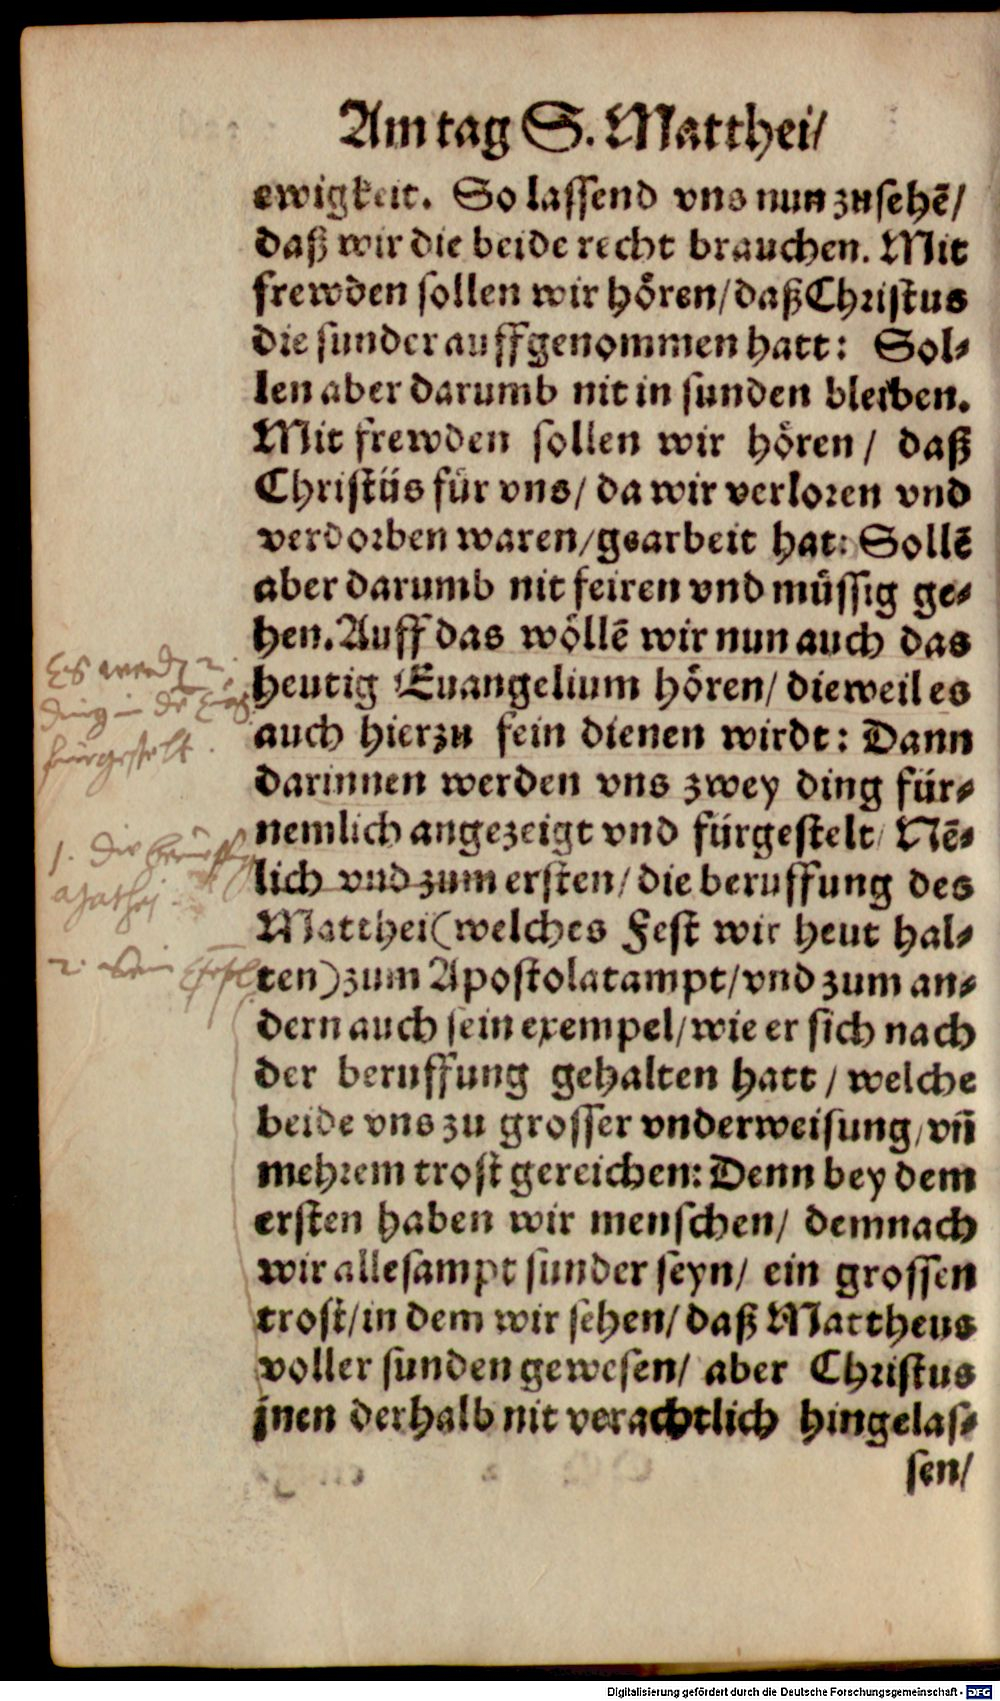 Am tag S. Matthei/
ewigkeit. So lassend vns nun zusehē/
daß wir die beide recht brauchen. Mit
frewden sollen wir hören/ daß Christus
die sunder auffgenommen hatt: Sol-
len aber darumb nit in sunden bleiben.
Mit frewden sollen wir hören/ daß
Christus für vns/ da wir verloren vnd
verdorben waren/ gearbeit hat: Sollē
aber darumb nit feiren vnd müssig ge-
hen. Auff das wöllē wir nun auch das
heutig Euangelium hören/ dieweil es
auch hierzu fein dienen wirdt: Dann
darinnen werden vns zwey ding für-
nemlich angezeigt vnd fürgestelt/ Nē-
lich vnd zum ersten/ die beruffung des
Matthei (welches Fest wir heut hal-
ten) zum Apostolatampt/ vnd zum an-
dern auch sein exempel/ wie er sich nach
der beruffung gehalten hatt/ welche
beide vns zu grosser vnderweisung/ vn̄
mehrem trost gereichen: Denn bey dem
ersten haben wir menschen/ demnach
wir allesampt sunder seyn/ ein grossen
trost/ in dem wir sehen/ daß Mattheus
voller sunden gewesen/ aber Christus
jnen derhalb nit verachtlich hingelas-
sen/
Es werdē 2
ding in
fürgestelt.
1. Die
Mathej.
2. Sein
Digitalisierung gefördert durch die Deutsche Forschungsgemeinschaft - DFG